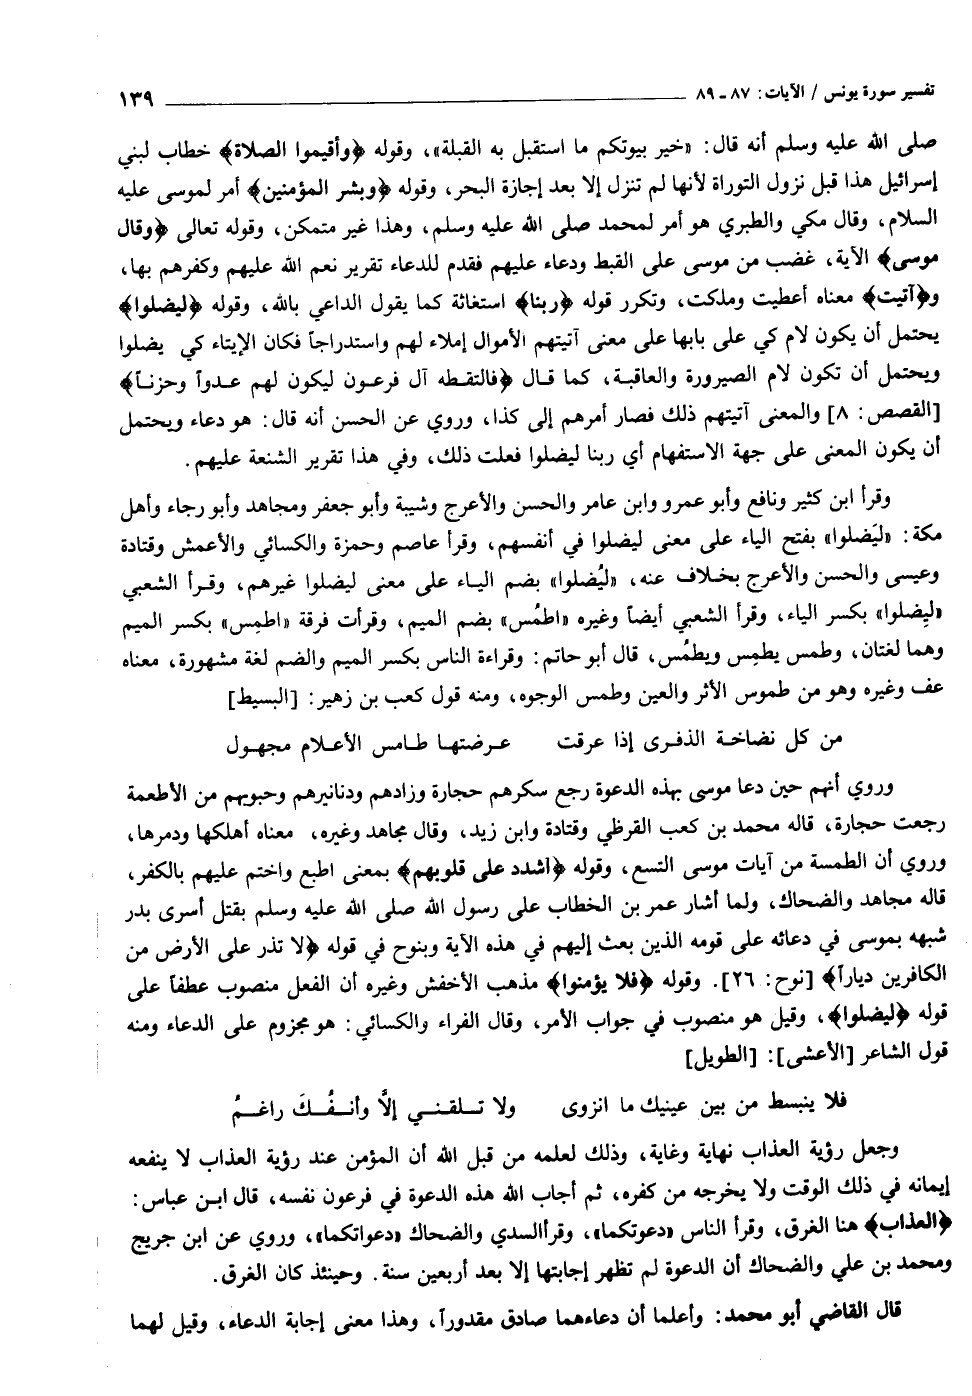 تفسير سورة يونس / الآيات: ٨٧ - ٨٩ ١٣٩
صلى الله عليه وسلم أنه قال: «خير بيوتكم ما استقبل به القبلة»، وقوله ﴿وأقيموا الصلاة﴾ خطاب لبني
إسرائيل هذا قبل نزول التوراة لأنها لم تنزل إلا بعد إجازة البحر، وقوله ﴿وبشر المؤمنين﴾ أمر لموسى عليه
السلام، وقال مكي والطبري هو أمر لمحمد صلى الله عليه وسلم، وهذا غير متمكن، وقوله تعالى ﴿وقال
موسى﴾ الآية، غضب من موسى على القبط ودعاء عليهم فقدم للدعاء تقرير نعم الله عليهم وكفرهم بها،
و﴿آتيت﴾ معناه أعطيت وملكت، وتكرر قوله ﴿ربنا﴾ استغاثة كما يقول الداعي بالله، وقوله ﴿ليضلوا﴾
يحتمل أن يكون لام كي على بابها على معنى آتيتهم الأموال إملاء لهم واستدراجاً فكان الإيتاء كي يضلوا
ويحتمل أن تكون لام الصيرورة والعاقبة، كما قال ﴿فالتقطه آل فرعون ليكون لهم عدواً وحزناً﴾
[القصص: ٨] والمعنى آتيتهم ذلك فصار أمرهم إلى كذا، وروي عن الحسن أنه قال: هو دعاء ويحتمل
أن يكون المعنى على جهة الاستفهام أي ربنا ليضلوا فعلت ذلك، وفي هذا تقرير الشنعة عليهم.
وقرأ ابن كثير ونافع وأبو عمرو وابن عامر والحسن والأعرج وشيبة وأبو جعفر ومجاهد وأبو رجاء وأهل
مكة: «ليَضلوا» بفتح الياء على معنى ليضلوا في أنفسهم، وقرأ عاصم وحمزة والكسائي والأعمش وقتادة
وعيسى والحسن والأعرج بخلاف عنه، «ليُضلوا» بضم الياء على معنى ليضلوا غيرهم، وقرأ الشعبي
«ليِضلوا» بكسر الياء، وقرأ الشعبي أيضاً وغيره «اطمُس» بضم الميم، وقرأت فرقة «اطمِس» بكسر الميم
وهما لغتان، وطمس يطمِس ويطمُس، قال أبو حاتم: وقراءة الناس بكسر الميم والضم لغة مشهورة، معناه
عف وغيره وهو من طموس الأثر والعين وطمس الوجوه، ومنه قول كعب بن زهير: [البسيط]
من كل نضاخة الذفرى إذا عرقت عرضتها طامس الأعلام مجهول
وروي أنهم حين دعا موسى بهذه الدعوة رجع سكرهم حجارة وزادهم ودنانيرهم وحبوبهم من الأطعمة
رجعت حجارة، قاله محمد بن كعب القرظي وقتادة وابن زيد، وقال مجاهد وغيره، معناه أهلكها ودمرها،
وروي أن الطمسة من آيات موسى التسع، وقوله ﴿اشدد على قلوبهم﴾ بمعنى اطبع واختم عليهم بالكفر،
قاله مجاهد والضحاك، ولما أشار عمر بن الخطاب على رسول الله صلى الله عليه وسلم بقتل أسرى بدر
شبهه بموسى في دعائه على قومه الذين بعث إليهم في هذه الآية وبنوح في قوله ﴿لا تذر على الأرض من
الكافرين دياراً﴾ [نوح: ٢٦]. وقوله ﴿فلا يؤمنوا﴾ مذهب الأخفش وغيره أن الفعل منصوب عطفاً على
قوله ﴿ليضلوا﴾، وقيل هو منصوب في جواب الأمر، وقال الفراء والكسائي: هو مجزوم على الدعاء ومنه
قول الشاعر [الأعشى]: [الطويل]
فلا ينبسط من بين عينيك ما انزوى ولا تلقني إلاَّ وأنفُكَ راغمُ
وجعل رؤية العذاب نهاية وغاية، وذلك لعلمه من قبل الله أن المؤمن عند رؤية العذاب لا ينفعه
إيمانه في ذلك الوقت ولا يخرجه من كفره، ثم أجاب الله هذه الدعوة في فرعون نفسه، قال ابن عباس:
﴿العذاب﴾ هنا الغرق، وقرأ الناس «دعوتكما»، وقرأ السدي والضحاك «دعواتكما»، وروي عن ابن جريج
ومحمد بن علي والضحاك أن الدعوة لم تظهر إجابتها إلا بعد أربعين سنة. وحينئذ كان الغرق.
قال القاضي أبو محمد: وأعلما أن دعاءهما صادق مقدوراً، وهذا معنى إجابة الدعاء، وقيل لهما